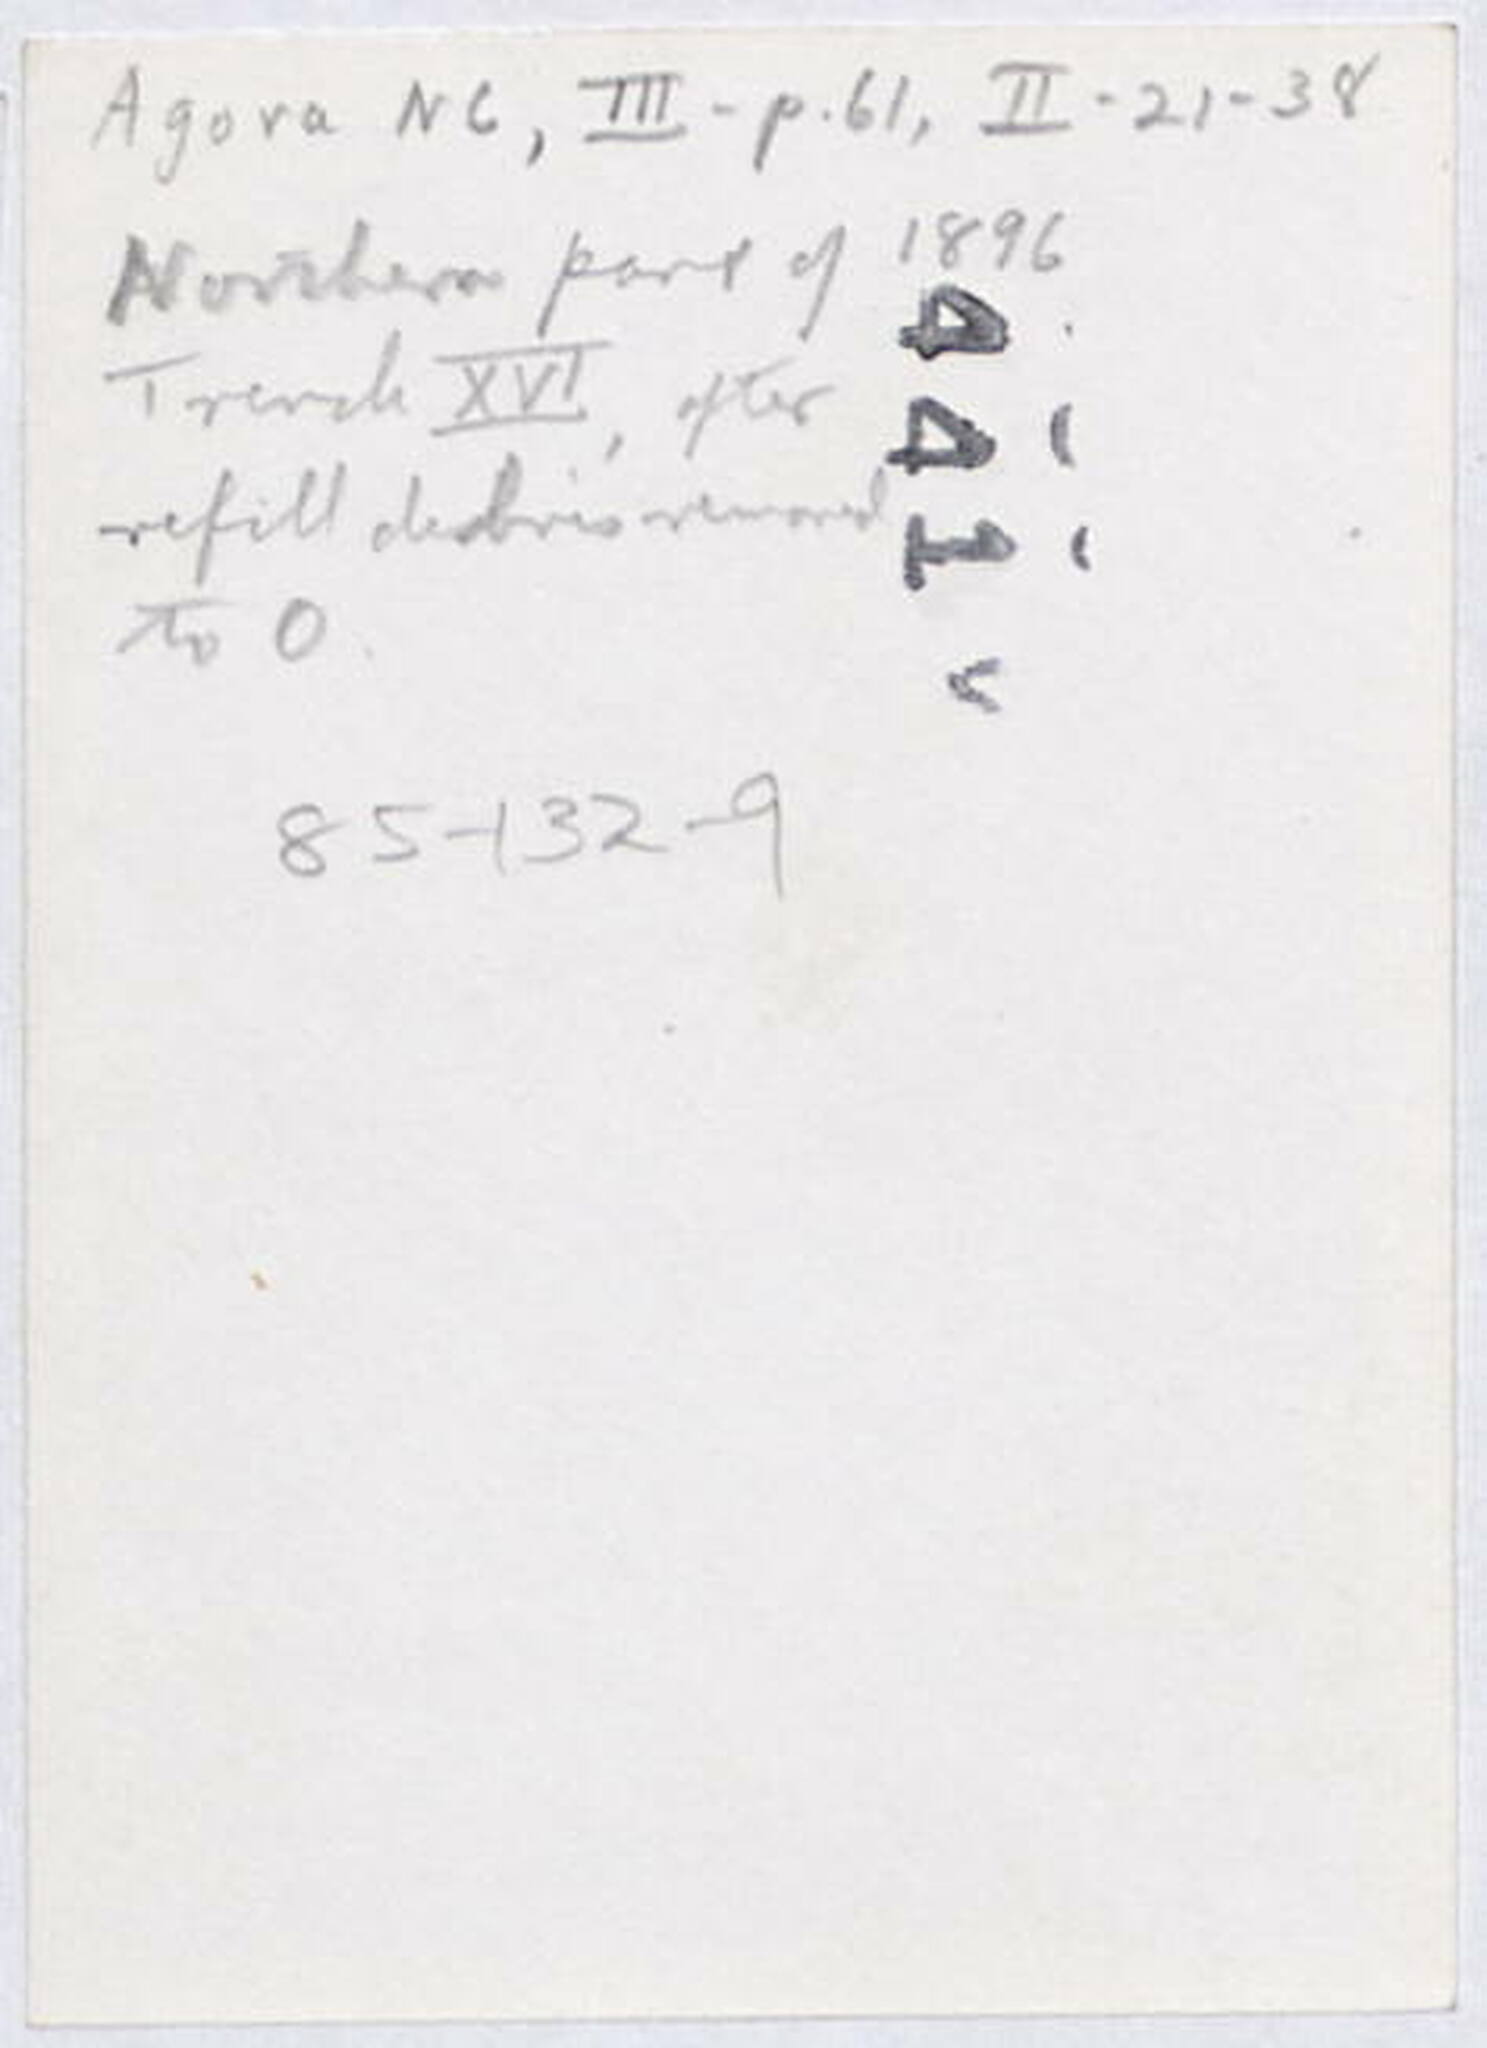 Agora NC, III - p.61, II - 21-38
Northern part of 1896
Trench XVI, after
refill debris removed
to O.
441
85-132-9